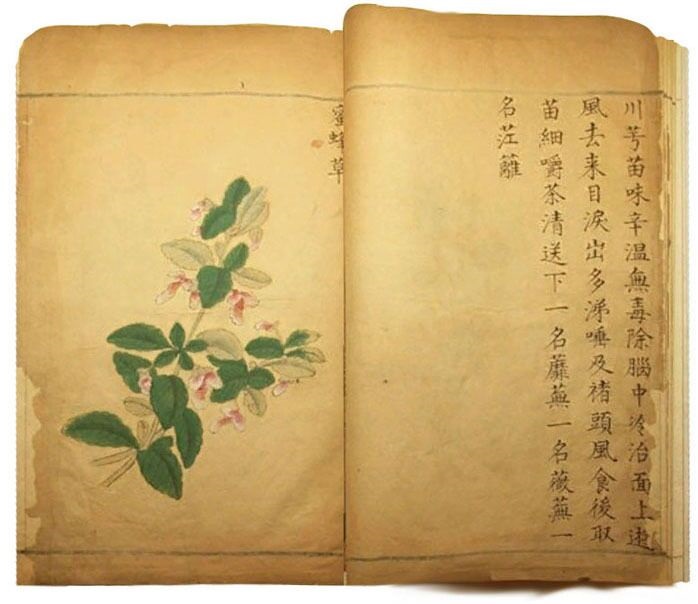 川芎苗味辛温無毒除腦中冷治面上遊
風去来目淚出多涕唾及諸頭風食後取
苗細嚼茶清送下一名蘼蕪一名薇蕪一
名茳蘺
蜜蜂草